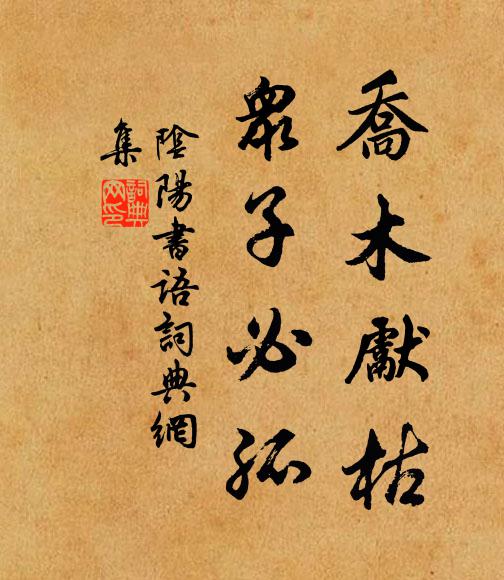 喬木獻枯
眾子必孤
陰陽書語詞典網
集
詞典網印